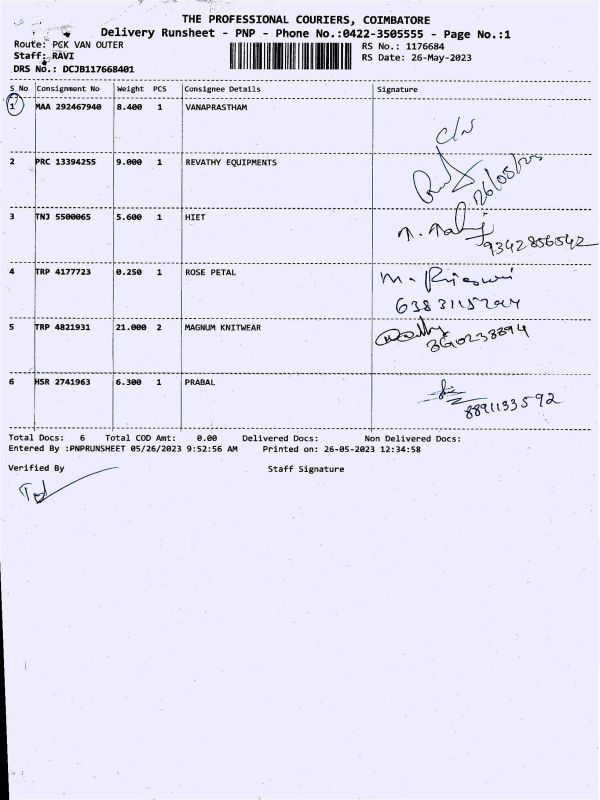 THE PROFESSIONAL COURIERS, COIMBATORE
Delivery Runsheet - PNP - Phone No.:0422-3505555 - Page No.:1
Route: PCK VAN OUTER
RS No.: 1176684
Staff: RAVI
RS Date: 26-May-2023
DRS No.: DCJB117668401
S No Consignment No Weight PCS Consignee Details Signature
1 MAA 292467940 8.400 1 VANAPRASTHAM
C/N
2 PRC 13394255 9.000 1 REVATHY EQUIPMENTS
26/05/23
3 TNJ 5500065 5.600 1 HIET
9342856542
4 TRP 4177723 0.250 1 ROSE PETAL
5 TRP 4821931 21.000 2 MAGNUM KNITWEAR
6 HSR 2741963 6.300 1 PRABAL
8891133592
Total Docs: 6 Total COD Amt: 0.00 Delivered Docs: Non Delivered Docs:
Entered By :PNPRUNSHEET 05/26/2023 9:52:56 AM Printed on: 26-05-2023 12:34:58
Verified By Staff Signature